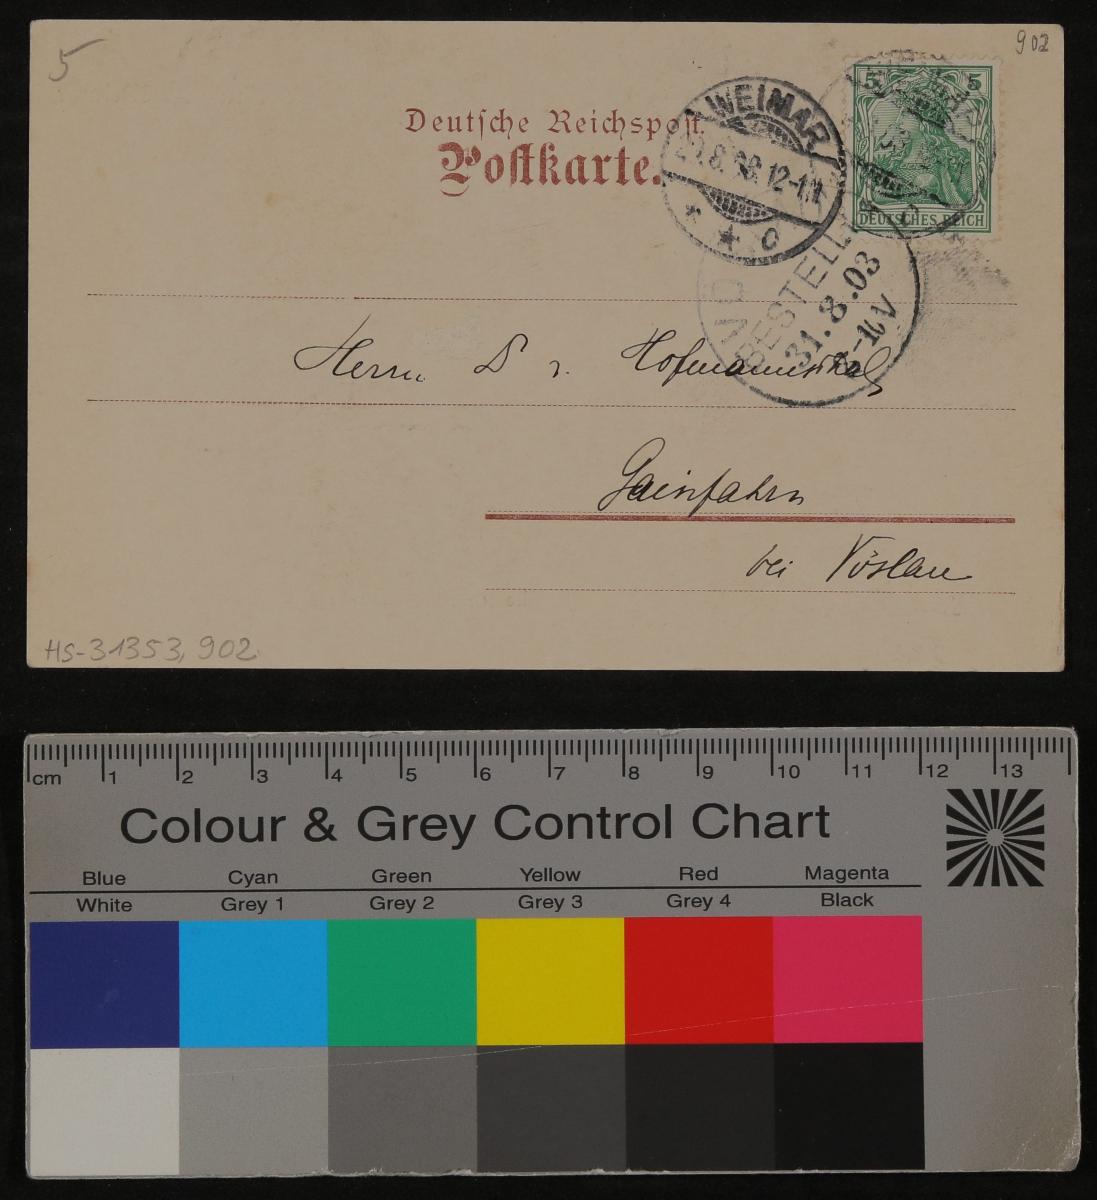 5
902
Deutsche Reichspost.
Postkarte.
5 5
DEUTSCHES REICH
WEIMAR
8. 12-1N
* * c
BESTELL
31.8.03
Herrn D v. Hofmannsthal
Gainfahrn
bei Vöslau
HS-31353,902
cm 1 2 3 4 5 6 7 8 9 10 11 12 13
Colour & Grey Control Chart
Blue Cyan Green Yellow Red Magenta
White Grey 1 Grey 2 Grey 3 Grey 4 Black